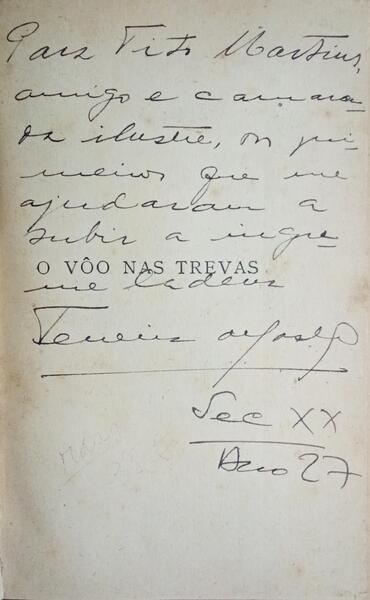 Para Tito Martins,
amigo e camara=
da ilustre, os pri-
meiros que me
ajudaram a
subir a ingre-
O VÔO NAS TREVAS
me ladeira
Ferreira
Sec XX
Ano 27